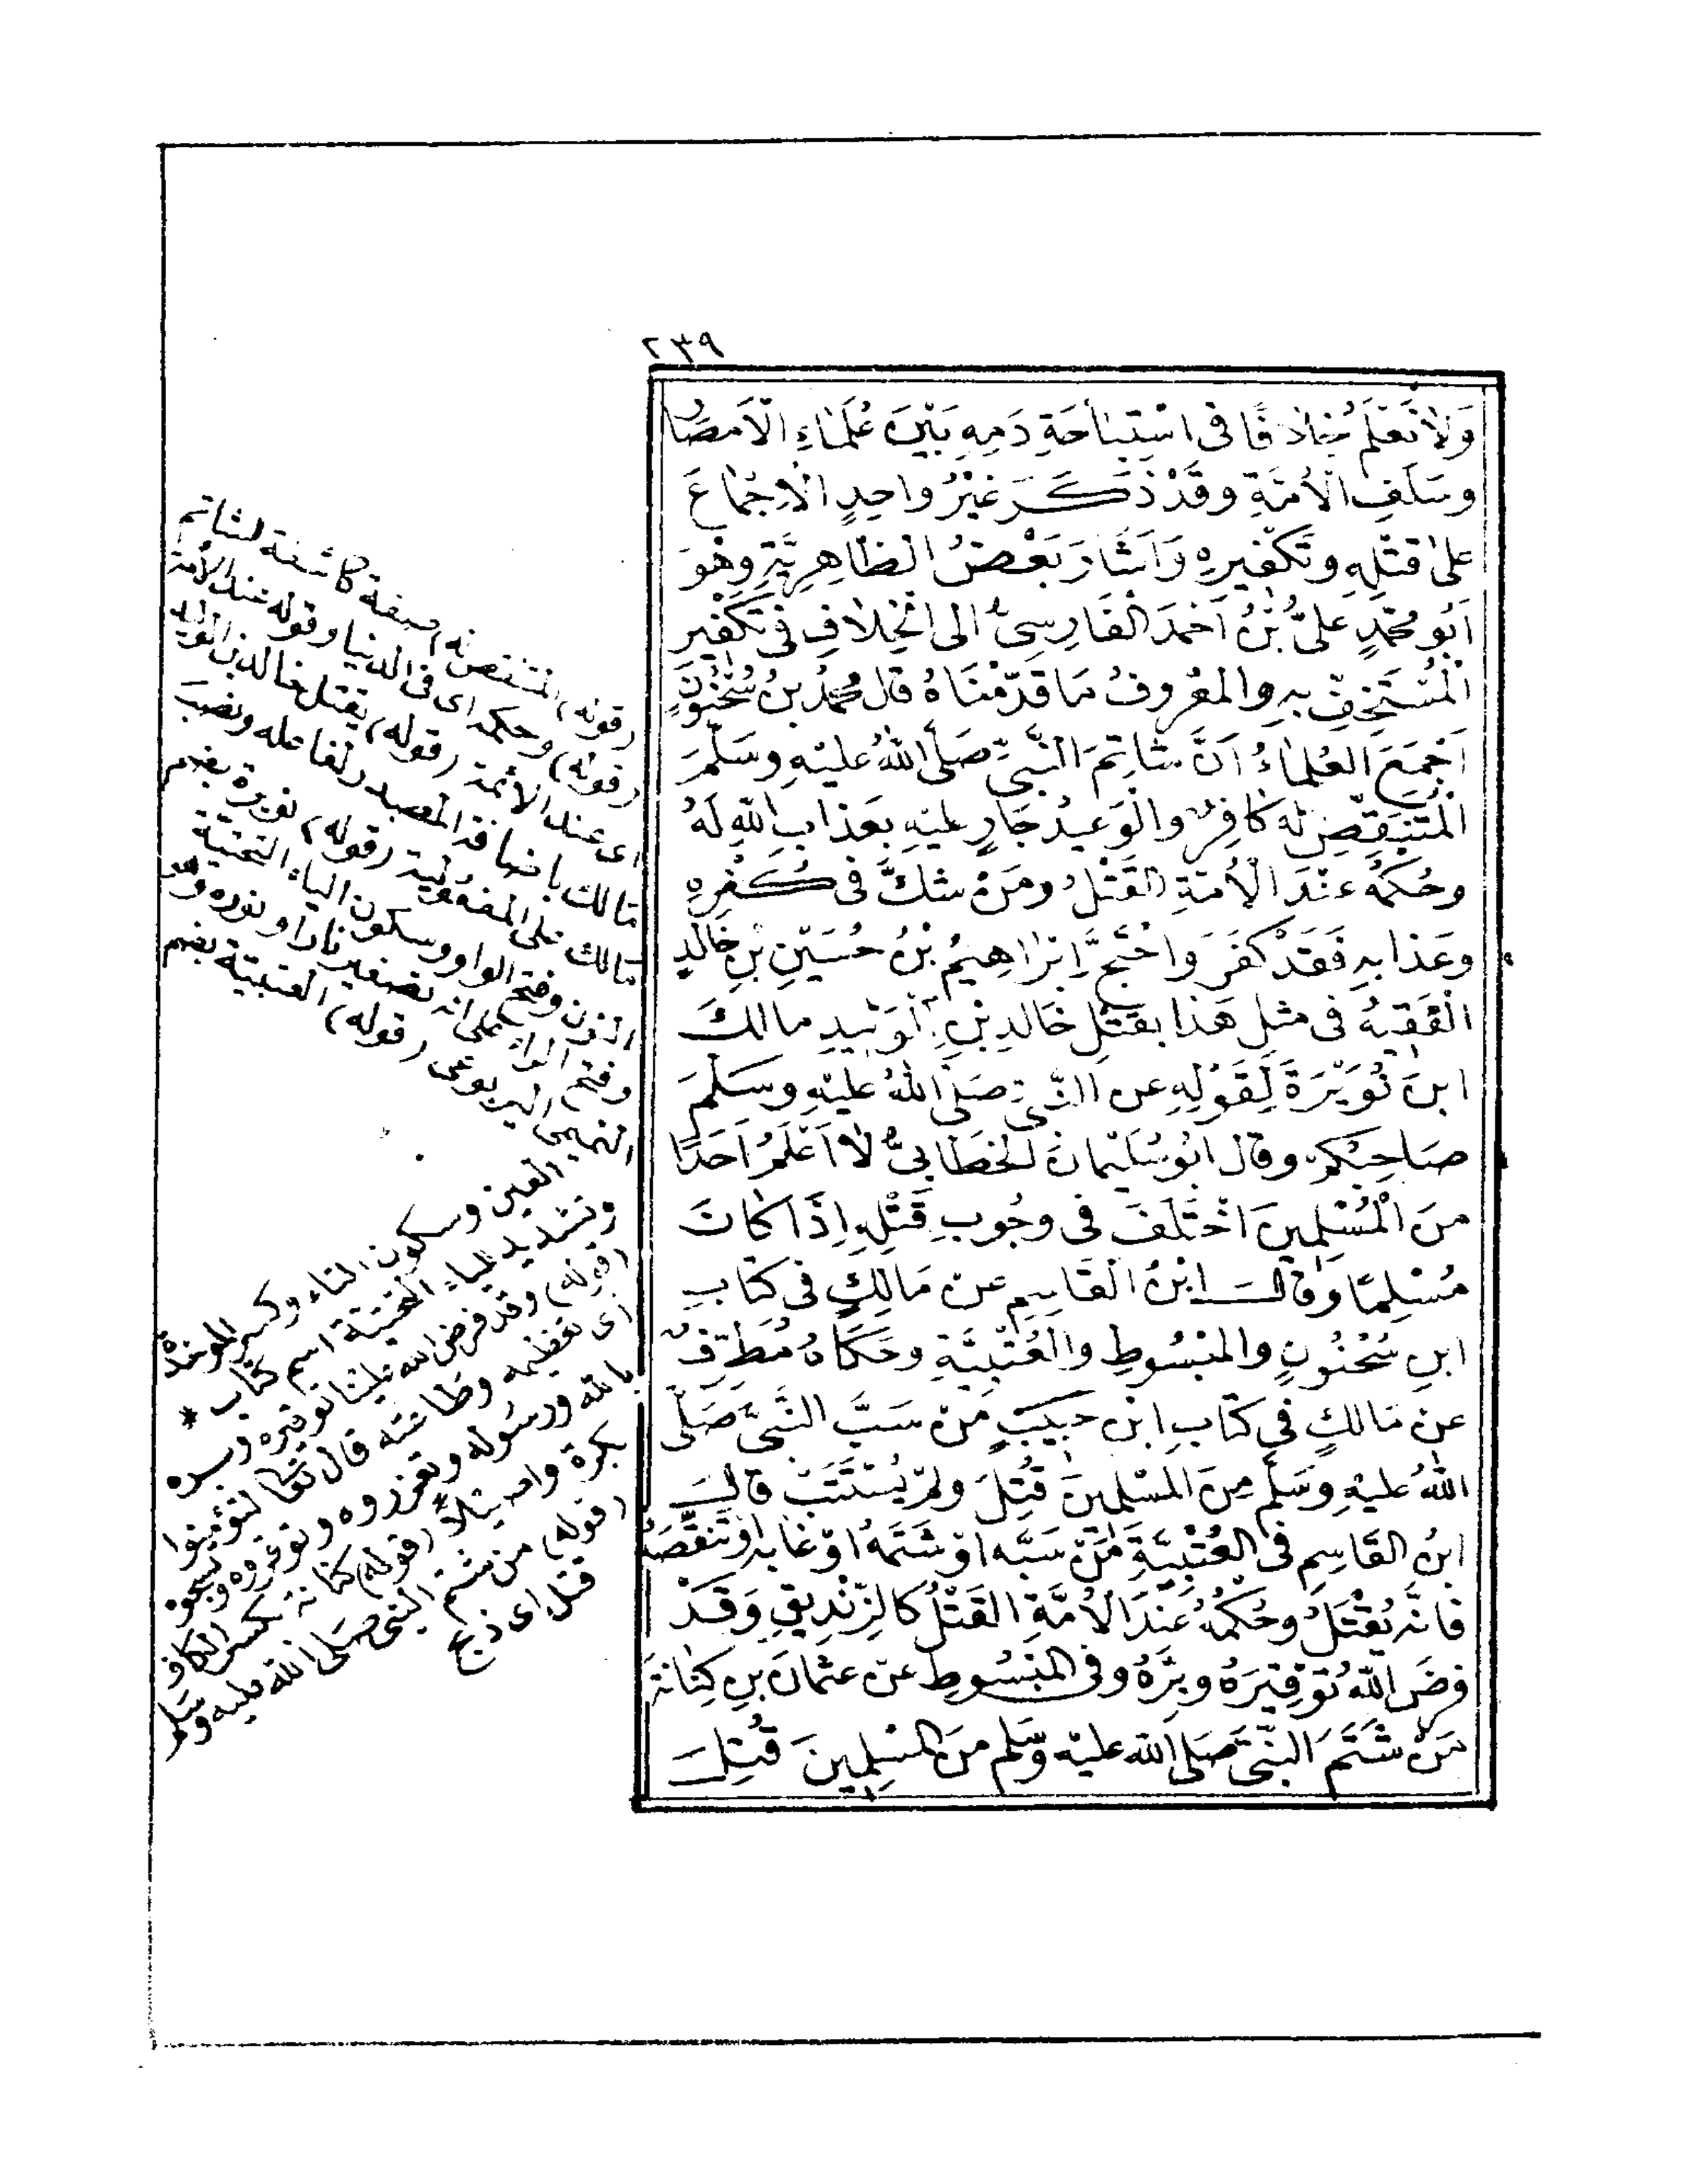 ٢٣٩
وَلاَ نَعْلَمُ خِلاَفًا فى اسْتِبَاحَةِ دَمِهِ بَيْنَ عُلَمَاءِ الْاَمصَا
وسَلَفِ الْاُمَّةِ وقَدْ ذَكَرَ غَيْرُ واحِدٍ الْاِجْمَاعَ
على قتْلِهِ وتَكْفيرِهِ وَاَشَارَ بَعْضُ الظَّاهِرِيَّةِ وهُوَ
اَبُو محمَّدٍ علىُّ بْنُ اَحْمَدَ الْفَارِسِىُّ الى الْخِلاَفِ فى تَكْفيرِ
الْمُسْتَخِفِّ بِهِ والمعْروفُ مَا قدَّمْنَاهُ قال محمدُ بنُ سُحْنُونٍ
اَجْمَعَ العُلمَاءُ اَنَّ شَاتِمَ النَّبِىِّ صَلَّى اللهُ عليْهِ وسَلَّمَ
المُتَنَقِّصِ لَهُ كافِرٌ والْوَعيدُ جَارٍ عليْهِ بعَذابِ اللهِ لَهُ
وحُكْمُهُ عنْدَ الْاُمَّةِ القَتْلُ ومَنْ شكَّ فى كُفْرِهِ
وعَذابِهِ فَقَدْ كفَرَ وَاحْتَجَّ اِبْرَاهِيمُ بْنُ حُسَيْنِ بْنِ خَالدٍ
الْفَقيهُ فى مثلِ هَذا بقَتْلِ خَالدِ بْنِ الْوَليدِ مالكَ
ابنَ نُوَيْرَةَ لِقَوْلِهِ عن النَّبىِّ صَلَّى اللهُ عليْهِ وسَلَّمَ
صَاحِبُكم وقال ابُو سُلَيْمانَ الْخَطَّابِىُّ لاَ اَعْلَمُ اَحَدًا
منَ الْمُسْلِمِينَ اخْتَلَفَ فى وجُوبِ قَتْلِهِ اِذَا كَانَ
مُسْلِمًا وَقالَ ابْنُ الْقَاسِمِ عنْ مَالِكٍ فى كتَابِ
ابنِ سُحْنُونٍ والمبْسُوطِ والْعُتْبِيَّةِ وحَكَاهُ مُطَرِّفٌ
عنْ مَالكٍ فى كتَابِ ابْنِ حَبيبٍ مَنْ سَبَّ النَّبىَّ صَلَّى
اللهُ عليْهِ وسَلَّم مِنَ المسْلِمينَ قُتِلَ ولمْ يُسْتَتَبْ قالَ
ابنُ القَاسِمِ فى الْعُتْبِيَّةِ مَنْ سَبَّه اوْ شَتَمَهُ اوْ عَابَهُ اوْ تَنَقَّصَهُ
فَانَّهُ يُقْتَلُ وحُكْمُهُ عنْدَ الْاُمَّةِ القَتْلُ كالزِّنْديقِ وَقَدْ
فرَضَ اللهُ تَوْقِيرَهُ وبِرَّهُ وفى المبْسُوطِ عنْ عثْمَانَ بنِ كِنَانَةَ
مَنْ شَتَمَ النَّبىَّ صَلى الله عليْه وسَّلم منَ المسْلِمينَ قُتِلَ
(قوله) المتنقص له صفة كاشفة لشاتم
(قوله) وحكمه اى فى الدنيا وقوله عند الأمة
اى عند الأئمة (قوله) بقتل خالد بن الوليد
مالك باضافة المصدر لفاعله ونصب
مالك على المفعولية (قوله) نويرة بضم
النون وفتح الواو وسكون الياء التحتية
وفتح الراء على انه تصغير نار او نوره وهو
التميمى اليربوعى (قوله) العتبية بضم
العين وسكون التاء وكسر الموحدة
وتشديد الياء التحتية اسم كتاب *
(قوله) وقد فرض الله علينا توقيره وبره
اى تعظيمه وطاعته قال تعالى لتؤمنوا
بالله ورسوله وتعزروه وتوقروه وتسبحوه
بكرة واصيلاً (قوله) كنانة بكسر الكاف
(قوله) من شتم النبى صلى الله عليه وسلم
قتل اى ذبح